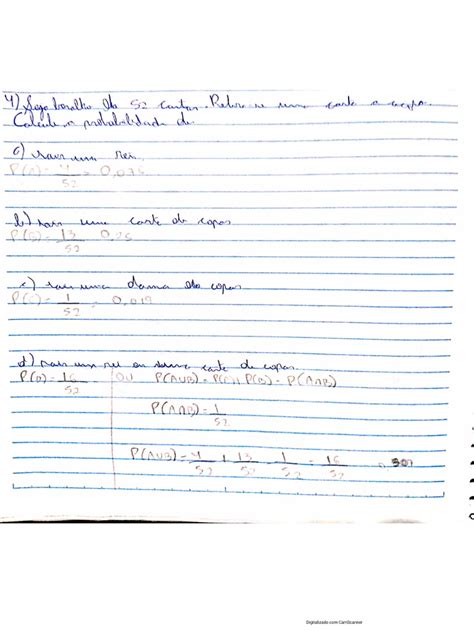 4) Seja baralho de 52 cartas. Retira-se uma carta a
Calcule a probabilidade de:
a) sair um rei
P(A) = 4/52 =
b) sair uma carta de copas
P(B) = 13/52 0,25
c) sair uma dama de copas
P(C) = 1/52 = 0,019
d) sair um rei ou uma carta de copas.
P(D) = 16/52 ou P(A∪B) = P(A) + P(B) - P(A∩B)
P(A∩B) = 1/52
P(A∪B) = 4/52 + 13/52 - 1/52 = 16/52
Digitalizado com CamScanner